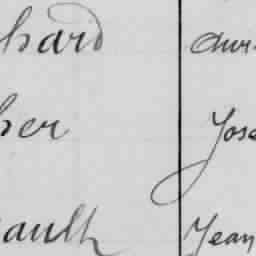 hard Aur
her Jose
ault Jean